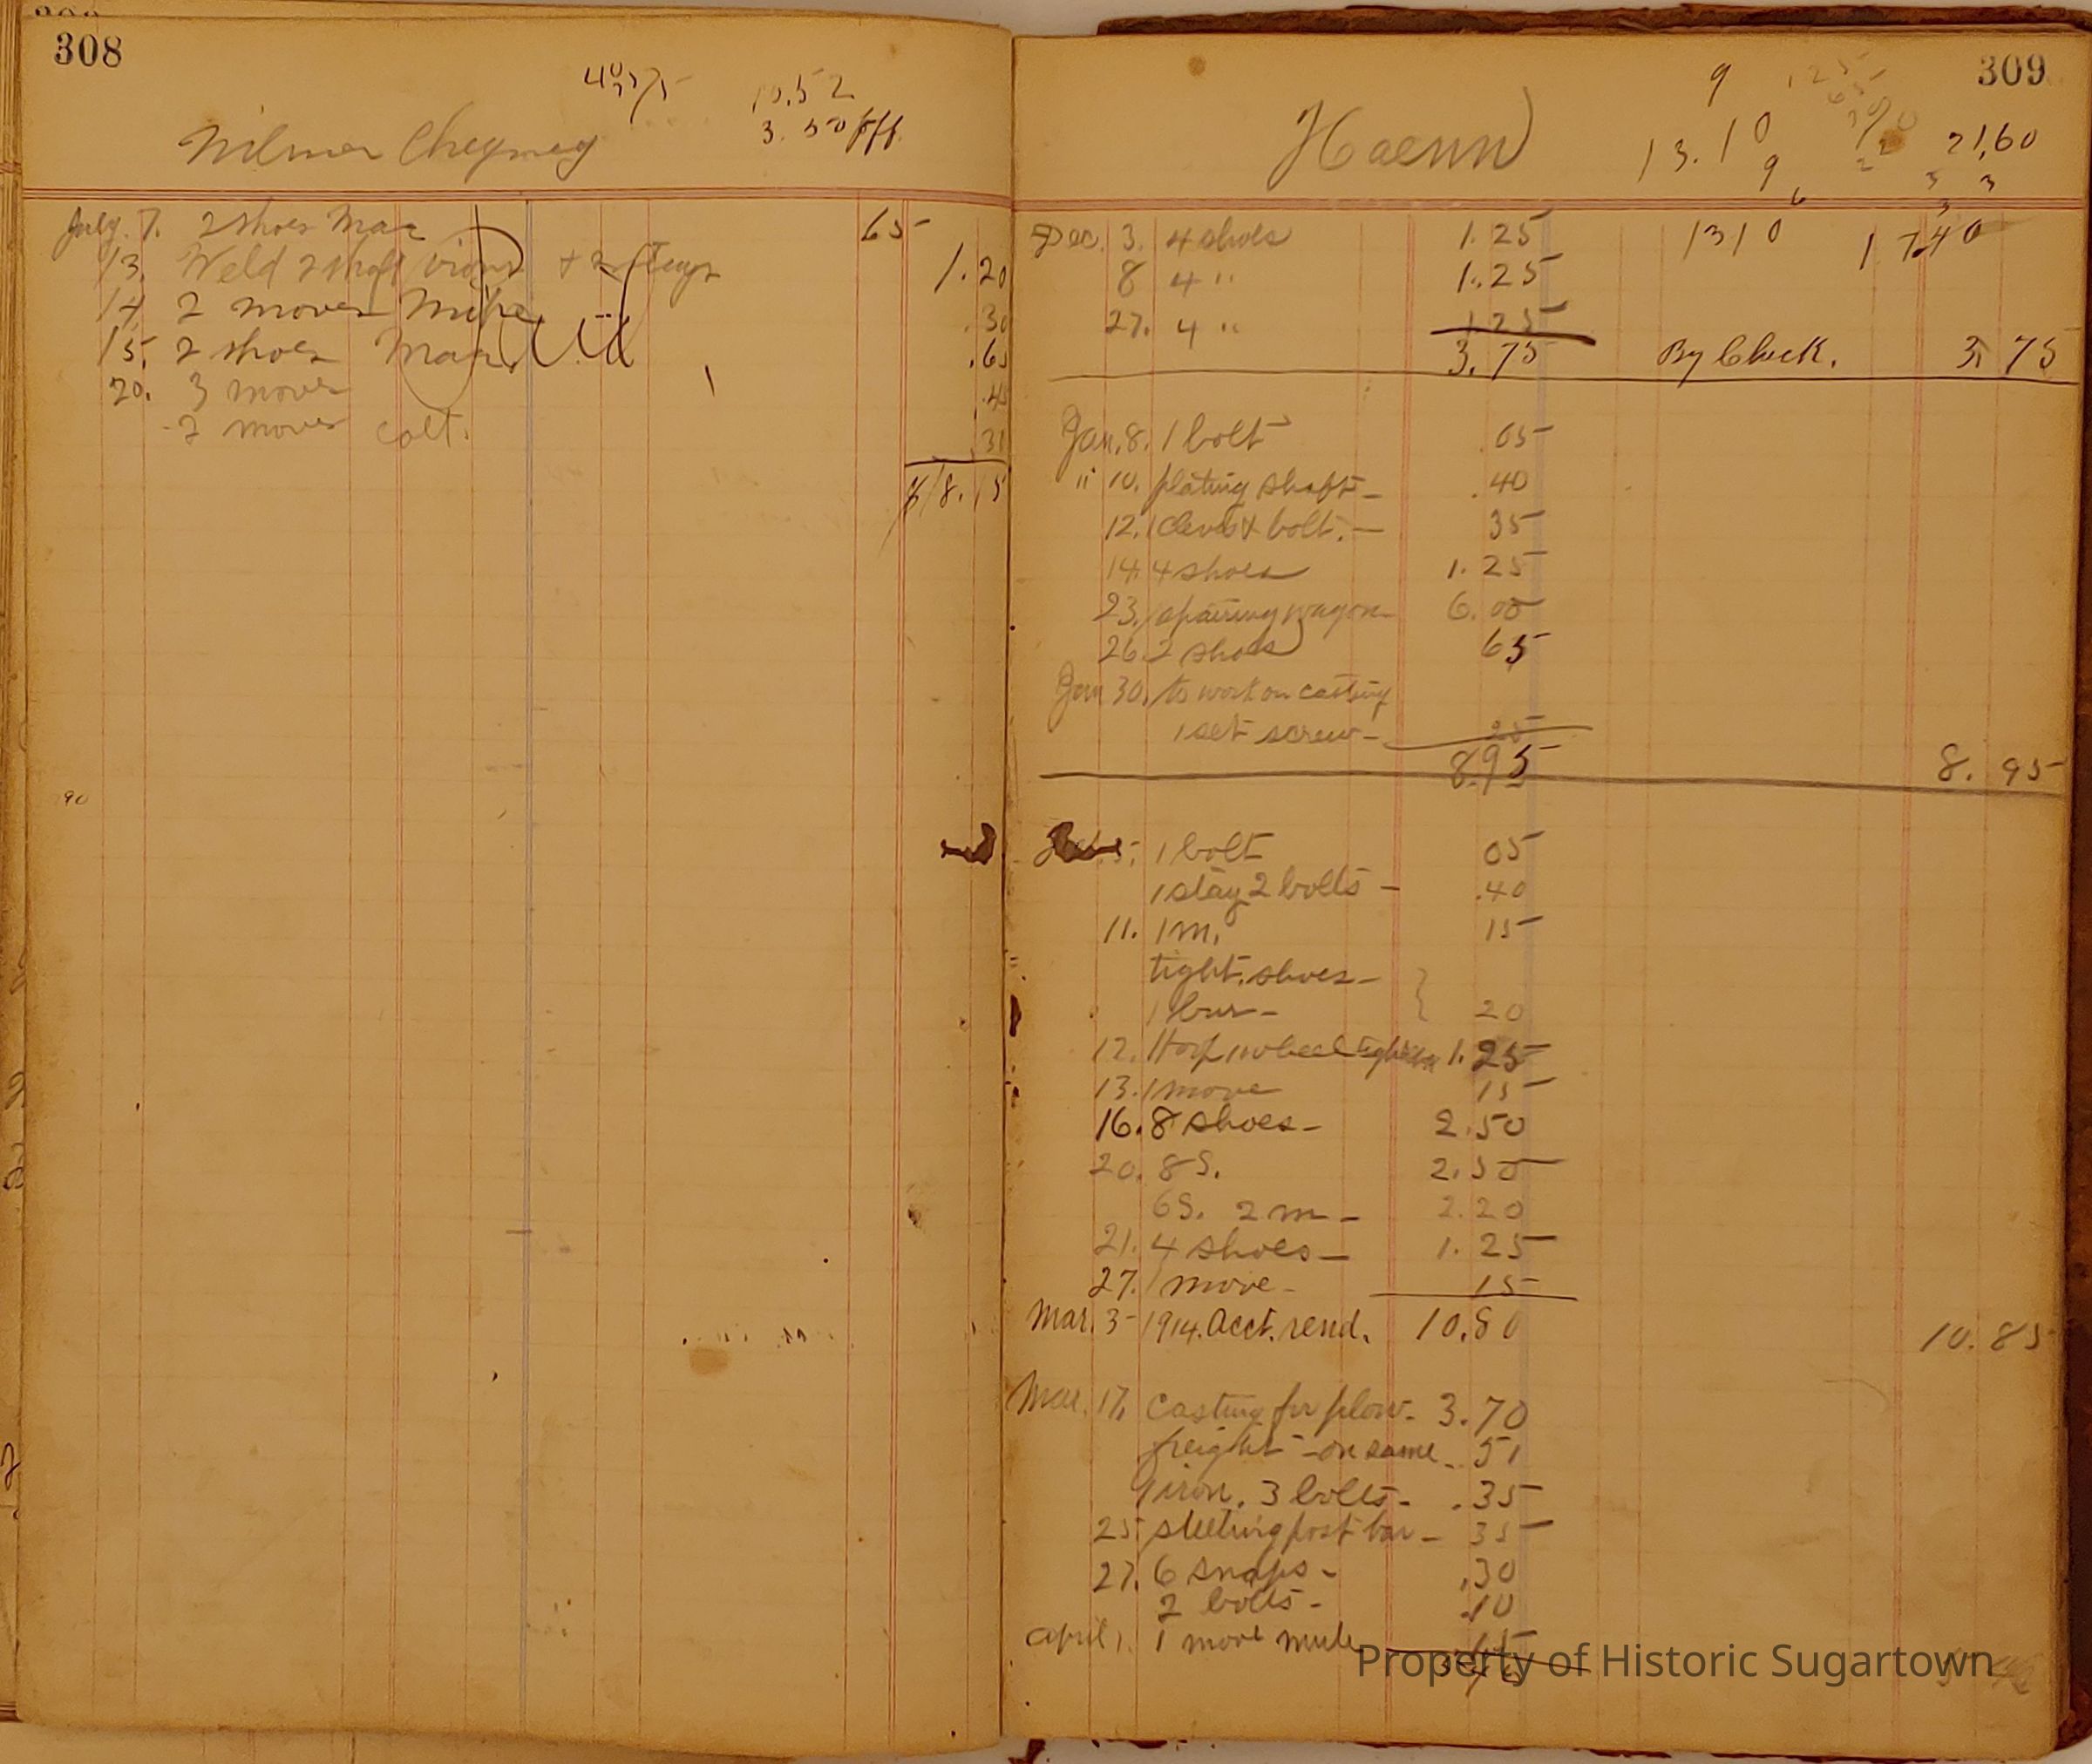 308
10.52
3.50 off.
Wilmer Cheyney
July. 7. 2 shoes Mac 65
13. Weld 2 shaft irons + 2 stays 1.20
14 2 moves Mike .30
15. 2 shoes Mac. .65
20. 3 moves .45
2 moves colt. 30
309
9
13.10
9
21,60
Haenn
Dec. 3. 4 shoes 1.25 1310 1 7.40
8 4 " 1.25
27. 4 " 1.25
3.75 By Check. 3 75
Jan. 8. 1 bolt 05
" 10. plating shaft - .40
12. 1 clevis & bolt. - 35
14. 4 shoes 1.25
23. repairing wagon - 6.00
26. 2 shoes 65
Jan 30. to work on casting
1 set screw - 25
8.95 8.95
5. 1 bolt 05
1 stay 2 bolts - .40
11. 1 m. 15
tight. shoes -
1 bur - 20
12. 1.25
13. 1 move 15
16. 8 shoes - 2.50
20. 8 S. 2.50
6 S. 2 m - 2.20
21. 4 shoes - 1.25
27. 1 move - 15
Mar. 3 - 1914. Acct. rend. 10.80 10.85
Mar. 17, Casting for plow - 3.70
freight - on same - 51
iron. 3 bolts - .35
25 post bar - 35
27. 6 snaps - .30
2 bolts - .10
April 1. 1 move mule 15
Property of Historic Sugartown